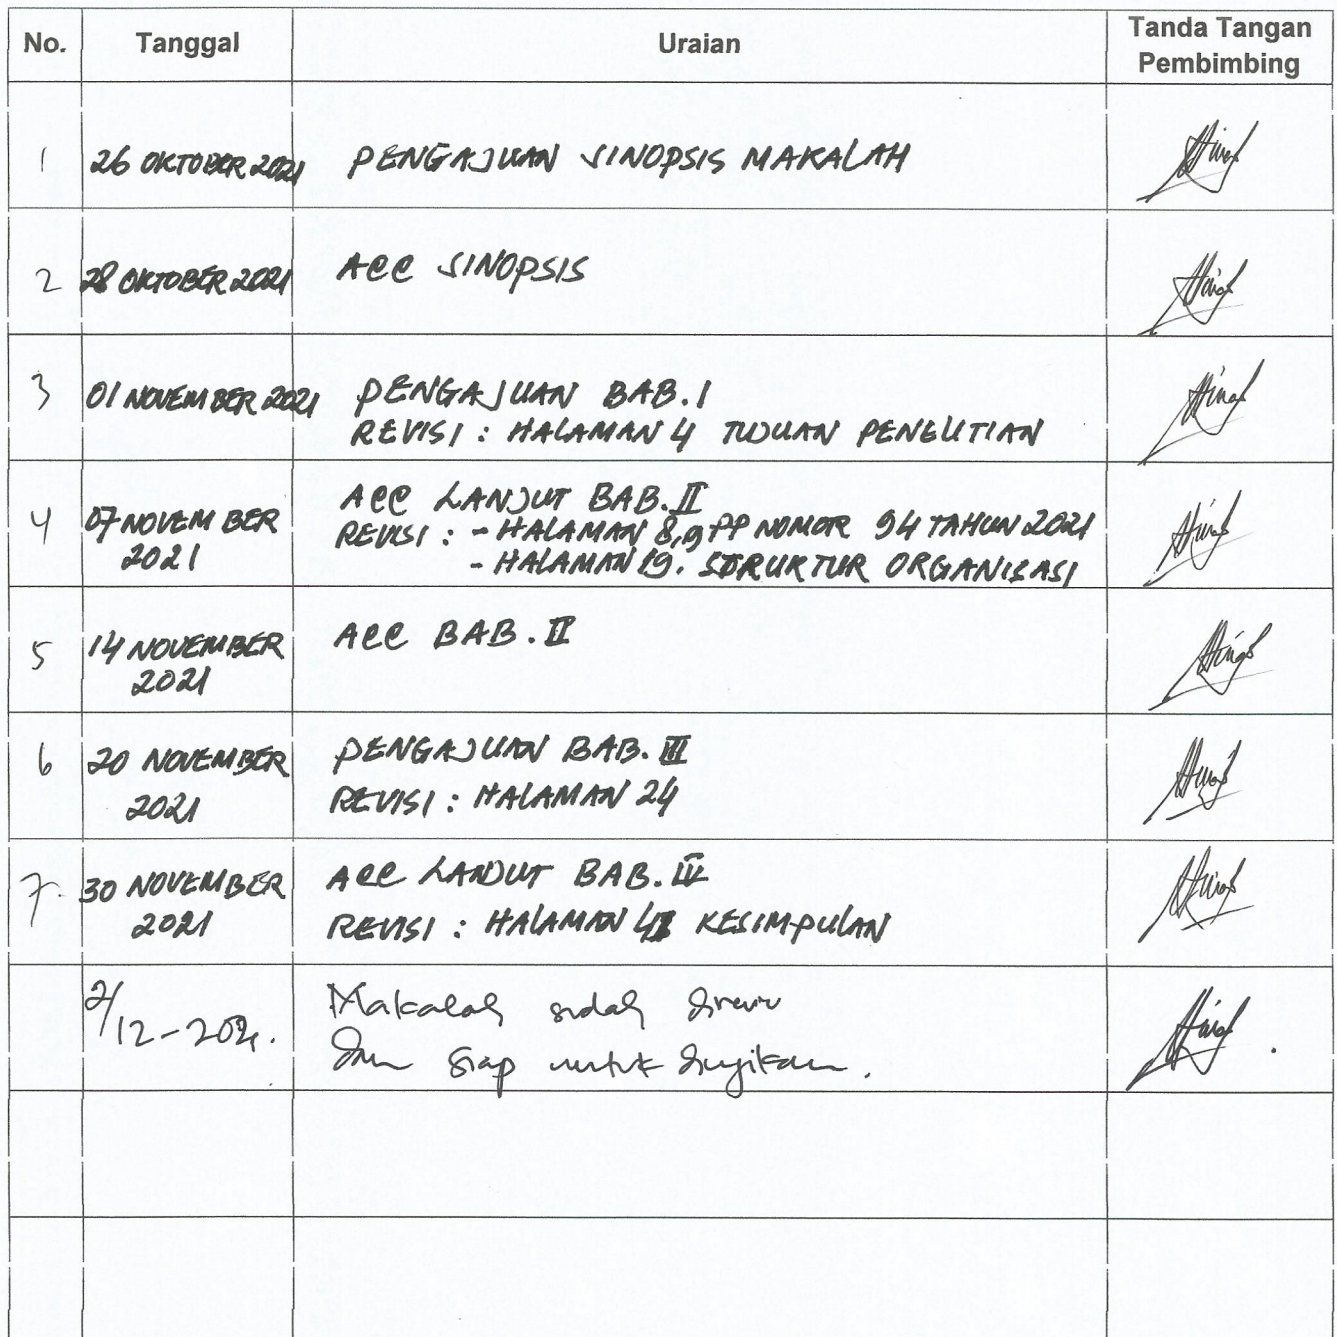 No. Tanggal Uraian Tanda Tangan Pembimbing
1 26 OKTOBER 2021 PENGAJUAN SINOPSIS MAKALAH
2 28 OKTOBER 2021 ACC SINOPSIS
3 01 NOVEMBER 2021 PENGAJUAN BAB. I
REVISI : HALAMAN 4 TUJUAN PENELITIAN
4 07 NOVEMBER 2021 ACC LANJUT BAB. II
REVISI : - HALAMAN 8,9 PP NOMOR 94 TAHUN 2021
- HALAMAN 19. STRUKTUR ORGANISASI
5 14 NOVEMBER 2021 ACC BAB. II
6 20 NOVEMBER 2021 PENGAJUAN BAB. III
REVISI : HALAMAN 24
7. 30 NOVEMBER 2021 ACC LANJUT BAB. IV
REVISI : HALAMAN KESIMPULAN
2/12-2021. Makalah sudah
dan siap untuk diujikan.